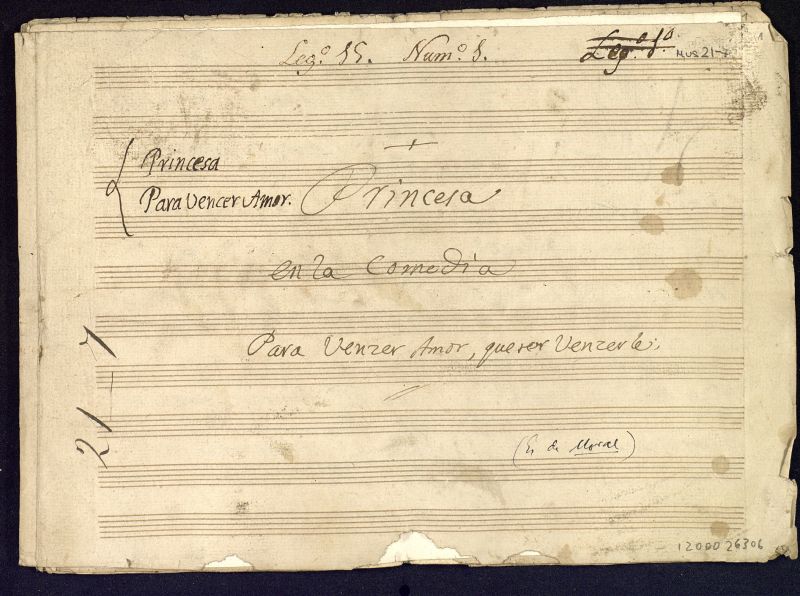 Leg.º 15. Num.º 8.
Leg.º 1.º
Mus 21-7
Princesa
Para Vencer Amor.
Princesa
en la Comedia
Para Venzer Amor, querer Venzerle.
21-7
(Es de Moral)
1200026306